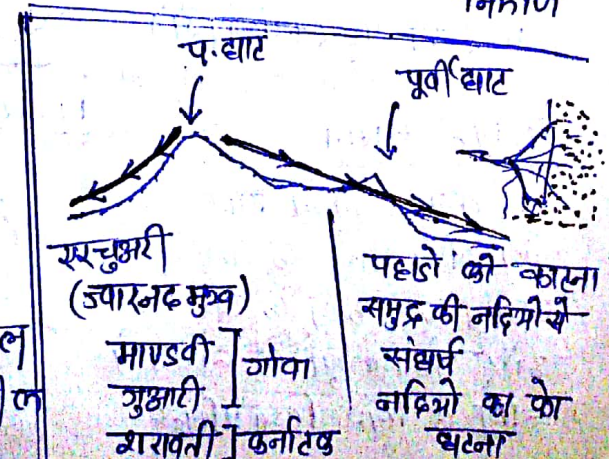 निर्माण
प. घाट
पूर्वी घाट
एस्चुअरी
(ज्वारनद मुख)
माण्डवी ] गोवा
जुआरी
शरावती ] कर्नाटक
पहाडो को काटना
समुद्र की नदियो से
संघर्ष
नदियो का वेग
घटना
ल
ल